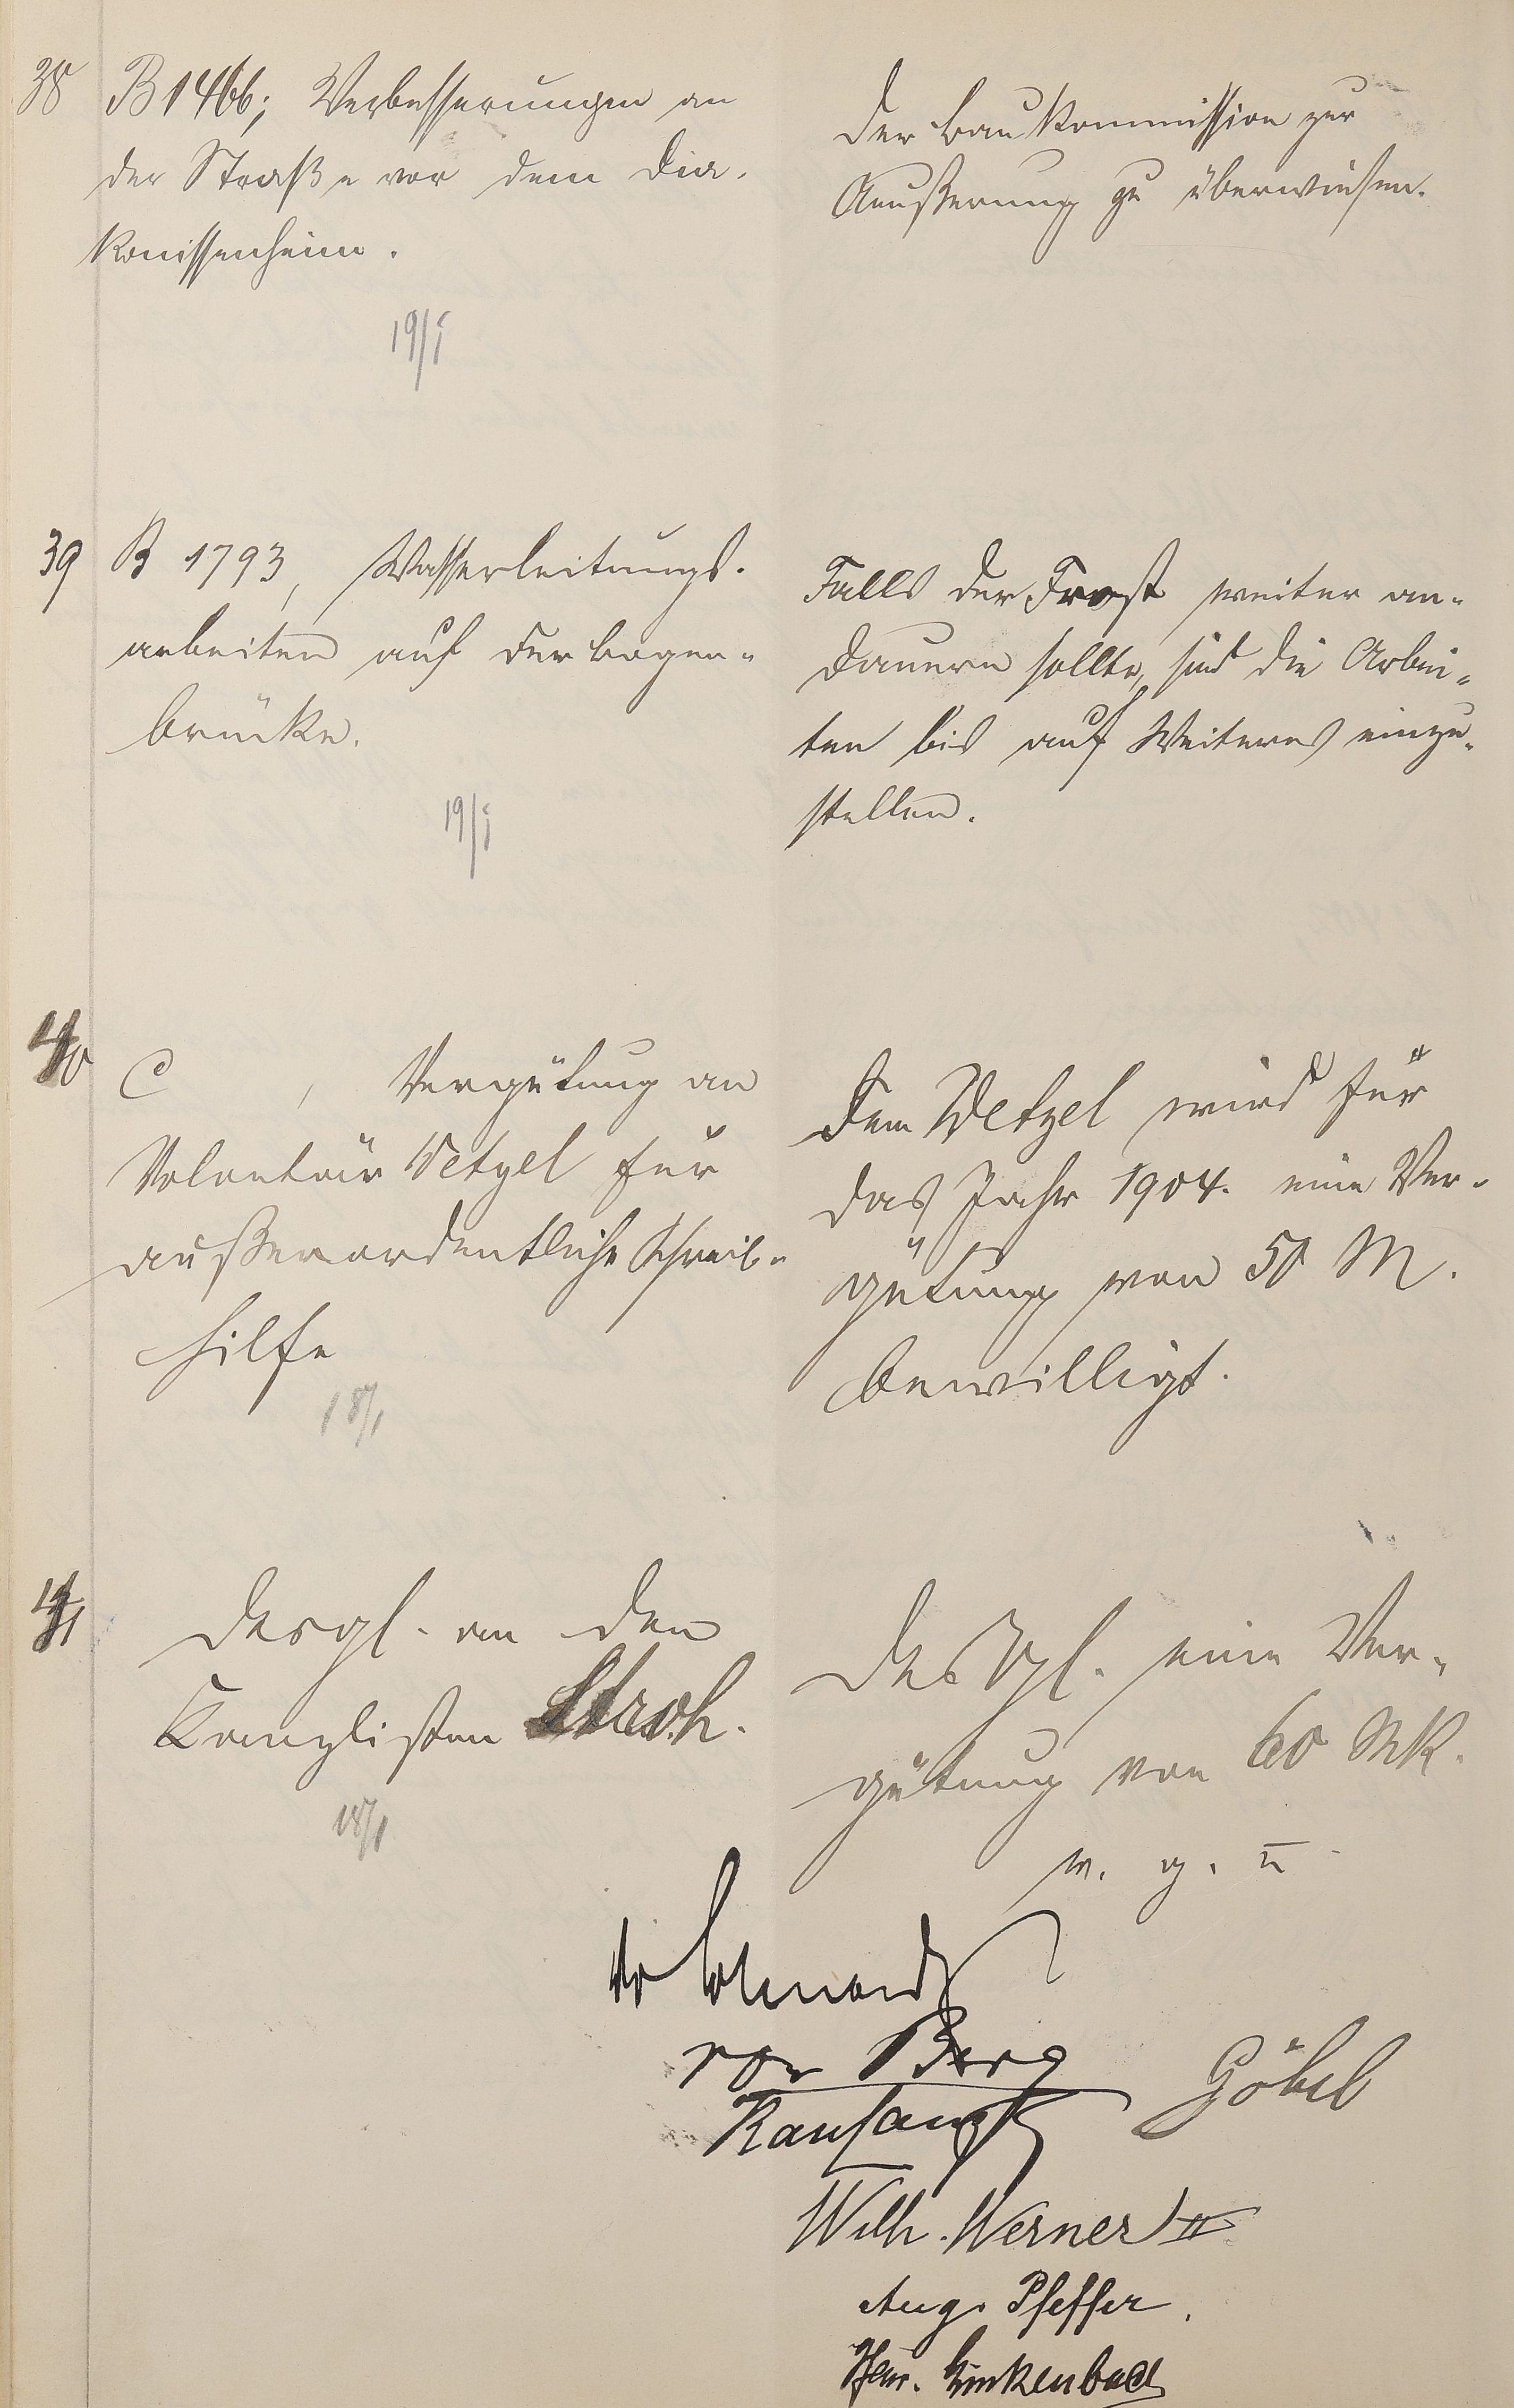 38
B 1466; Verbesserungen an
der Straße vor dem Dia-
konissenheim.
19/I
Der Baukommission zur
Aeußerung zu überweisen.
39
B 1793, Wasserleitungs-
arbeiten auf der Bogen-
brücke.
19/I
Falls der Frost weiter an-
dauern sollte, sind die Arbei-
ten bis auf Weiteres einzu-
stellen.
40
C , Vergütung an
Volontär Wetzel für
außerordentliche Schreib-
hilfe
18/1
Dem Wetzel wird für
das Jahr 1904. eine Ver-
gütung von 50 M.
bewilligt.
41
Desgl. an den
Kanzlisten Stroh.
18/1
Desgl. eine Ver-
gütung von 60 Mk.
v. g. u.
von Berg
Göbel
Wilh. Werner II
Aug. Pfeffer.